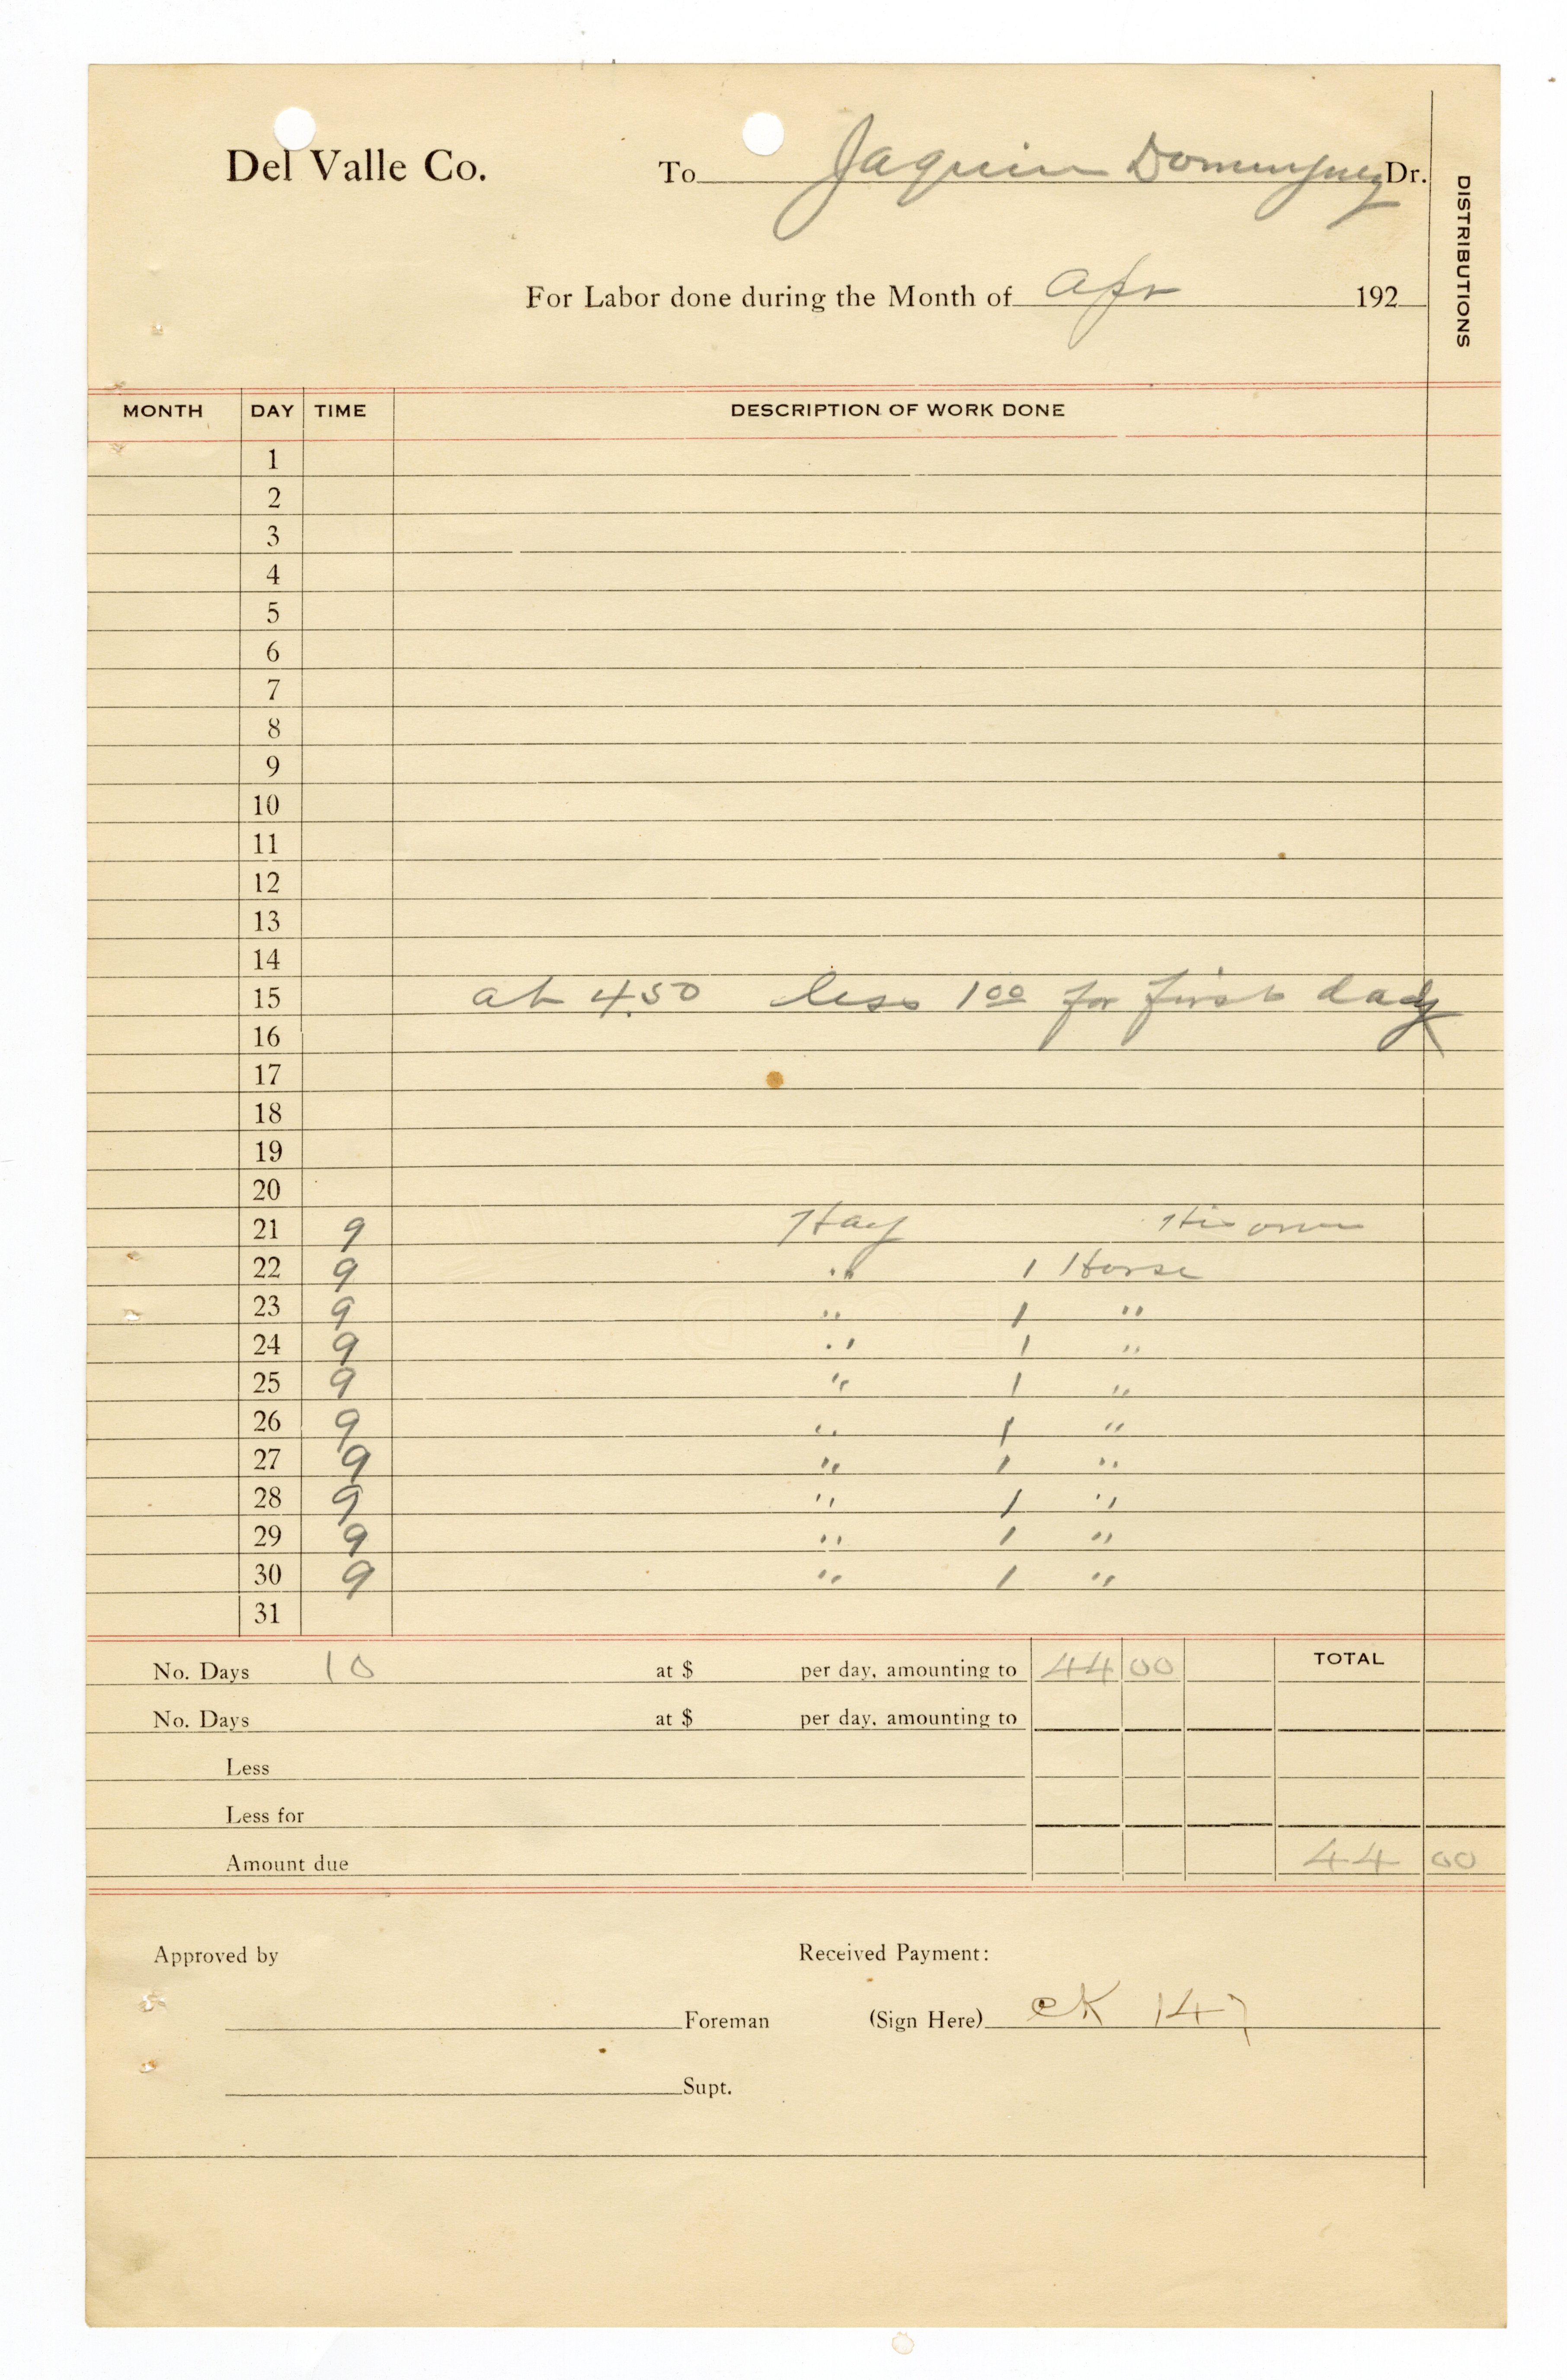 Del Valle Co. To Jaquin Dominguez Dr.
DISTRIBUTIONS
For Labor done during the Month of Apr 192
MONTH DAY TIME DESCRIPTION OF WORK DONE
1
2
3
4
5
6
7
8
9
10
11
12
13
14
15 at 4.50 less 1 00 for first day
16
17
18
19
20
21 9 Hay His own
22 9 " 1 Horse
23 9 " 1 "
24 9 " 1 "
25 9 " 1 "
26 9 " 1 "
27 9 " 1 "
28 9 " 1 "
29 9 " 1 "
30 9 " 1 "
31
No. Days 10 at $ per day, amounting to 44 00 TOTAL
No. Days at $ per day, amounting to
Less
Less for
Amount due 44 00
Approved by Received Payment:
Foreman (Sign Here) CK 147
Supt.